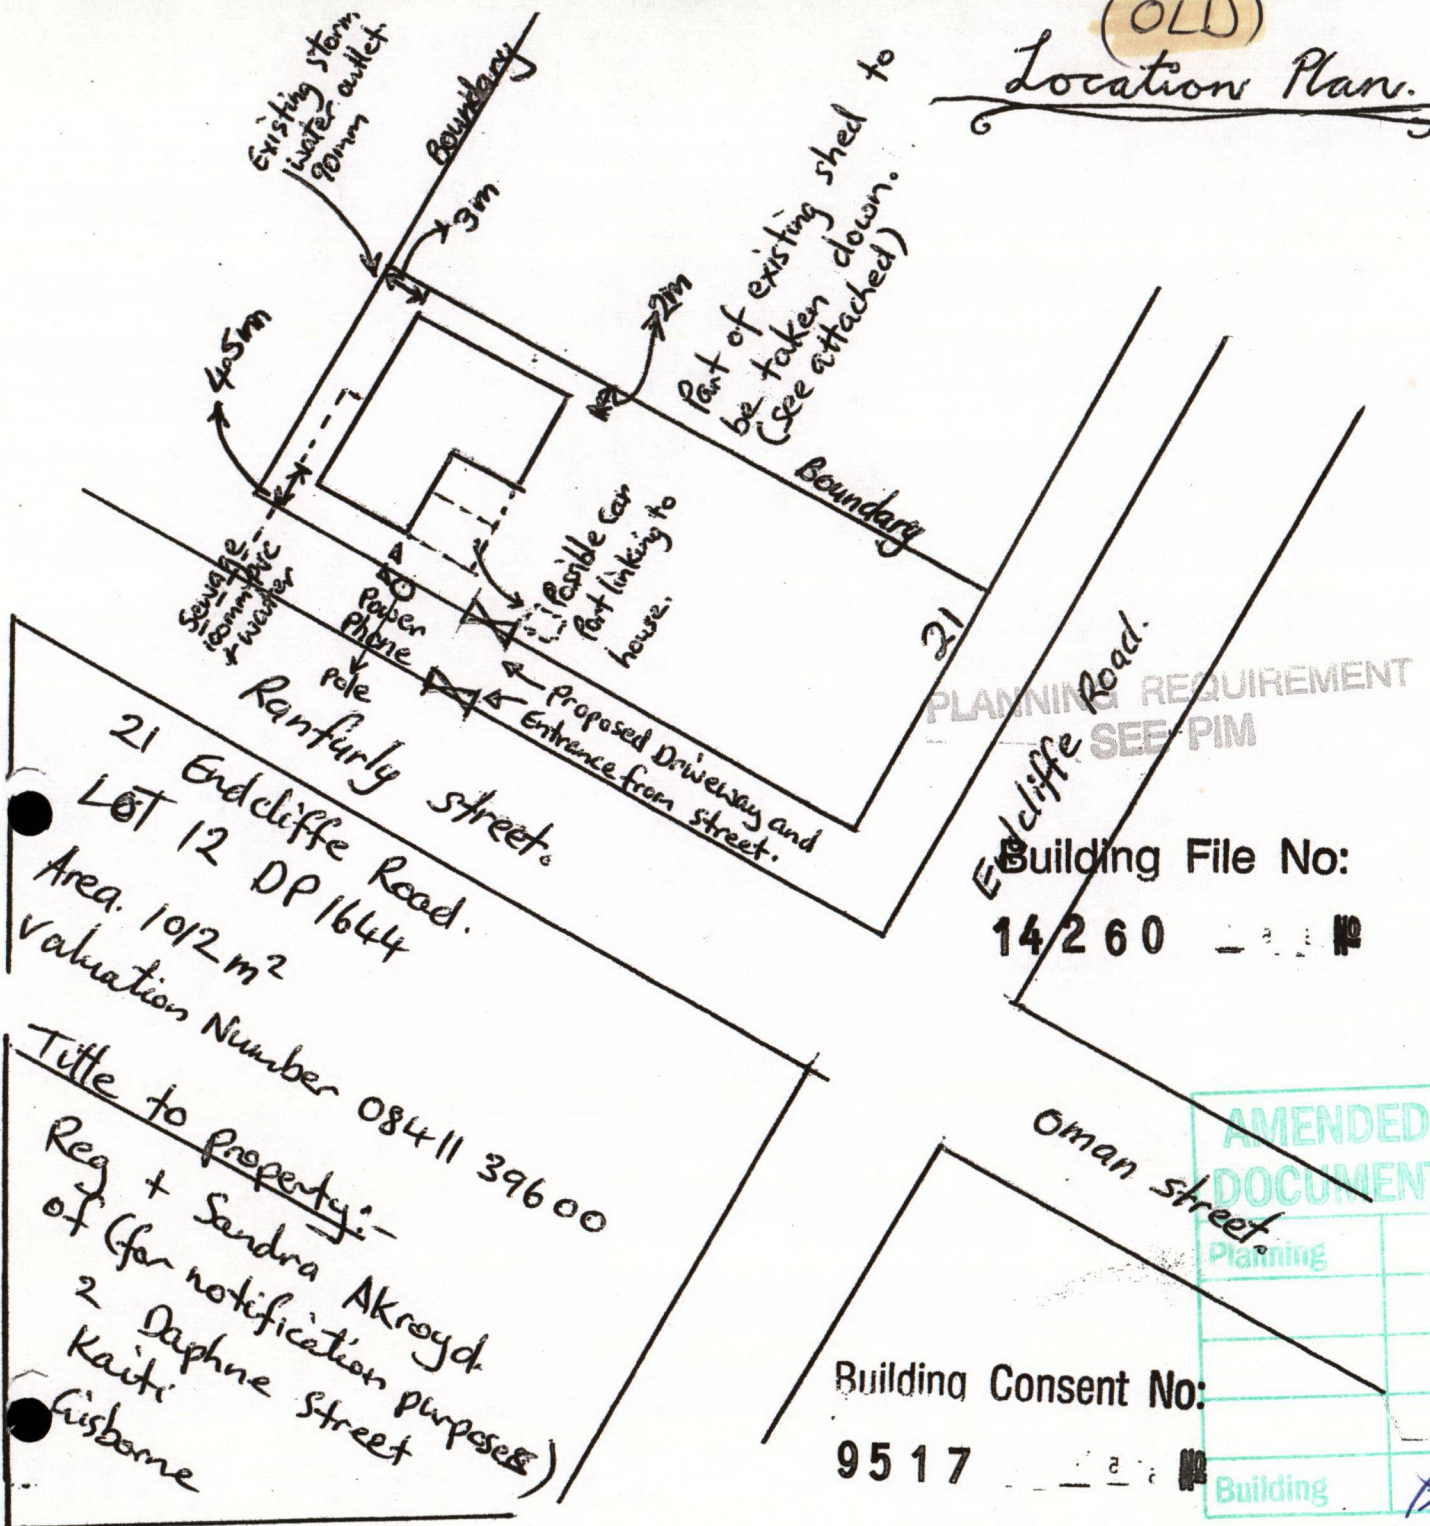 (OLD)
Location Plan.
Existing storm
water outlet.
90mm
Boundary
3m
4.5m
2m
Part of existing shed to
be taken down.
(see attached)
Boundary
21
Possible Car
Port linking to
house.
Sewage,
PVC
+ water
Power
Phone
Pole
Proposed Driveway and
Entrance from street.
Ranfurly street.
Endcliffe Road.
PLANNING REQUIREMENT
SEE PIM
Building File No:
14260 No
21 Endcliffe Road.
LOT 12 DP 1644
Area. 1012 m²
Valuation Number 08411 39600
Title to Property:-
Reg + Sandra Akroyd.
of (for notification purposes)
2 Daphne Street
Kaiti
Gisborne
Oman street.
AMENDED
DOCUMENT
Planning
Building
Building Consent No:
9517 No